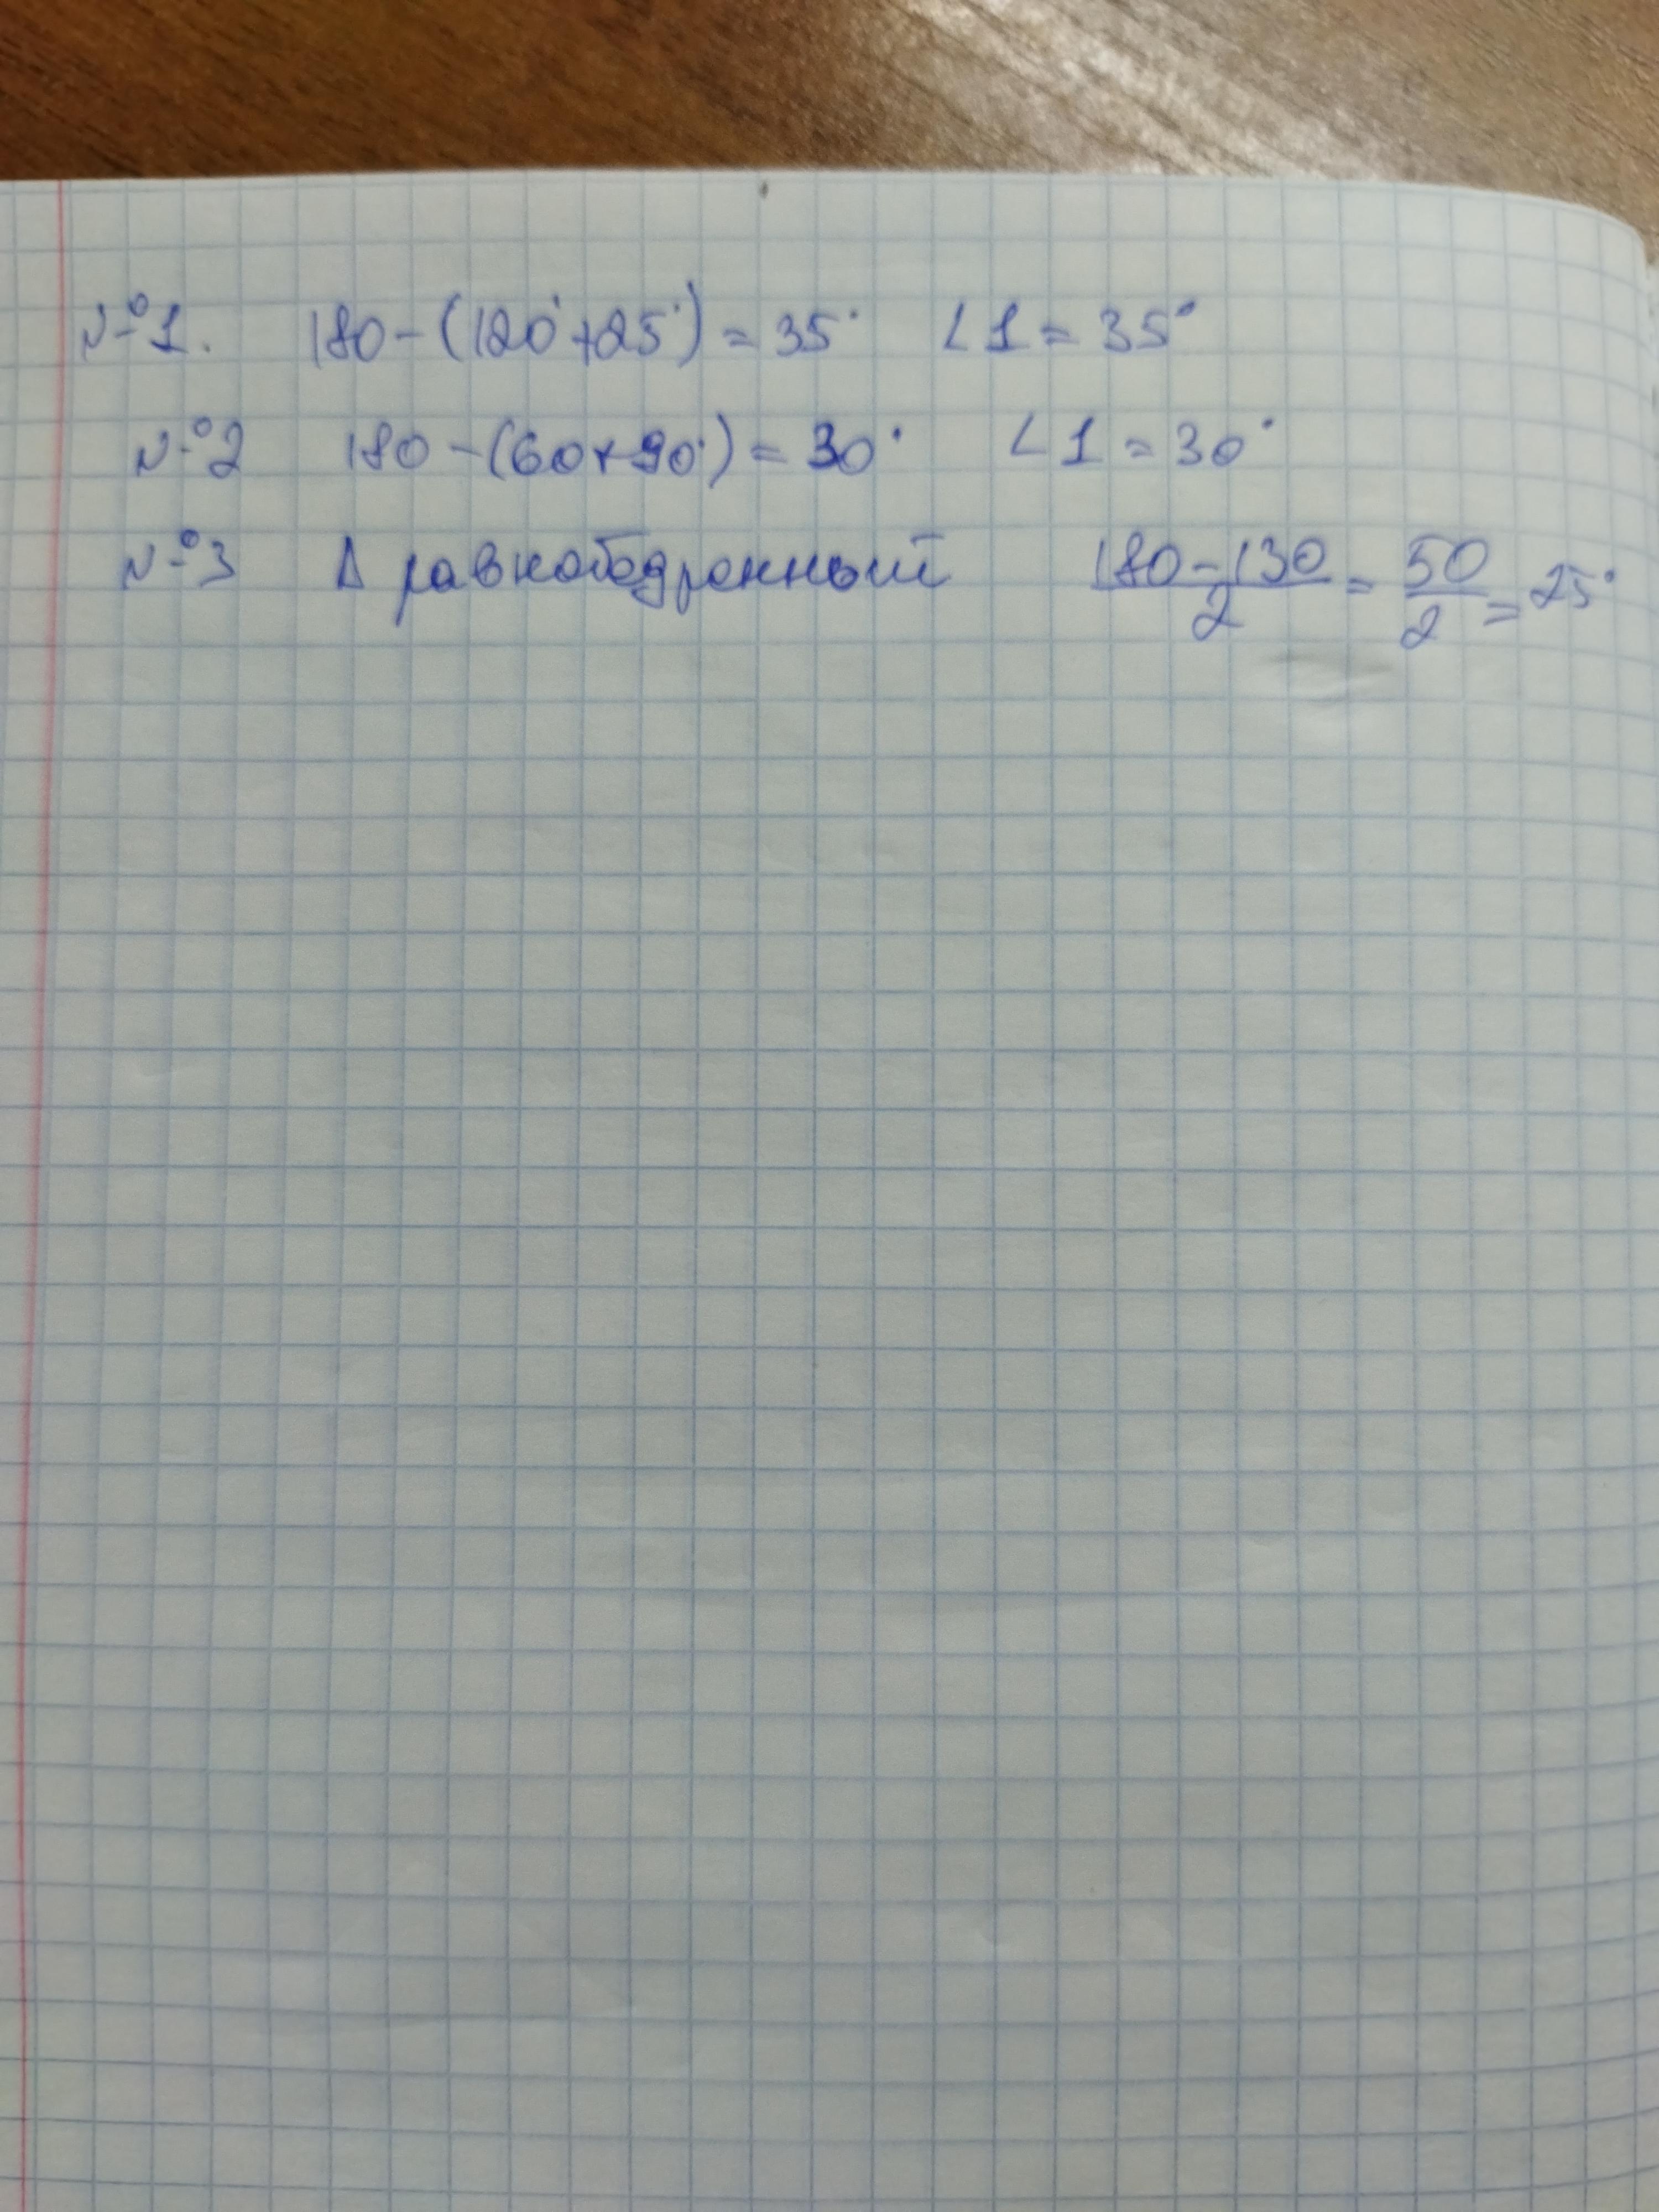 №1. 180-(120°+25°)=35° ∠1=35°
№2 180-(60+90°)=30° ∠1=30°
№3 Δ равнобедренный (180-130)/2=50/2=25°